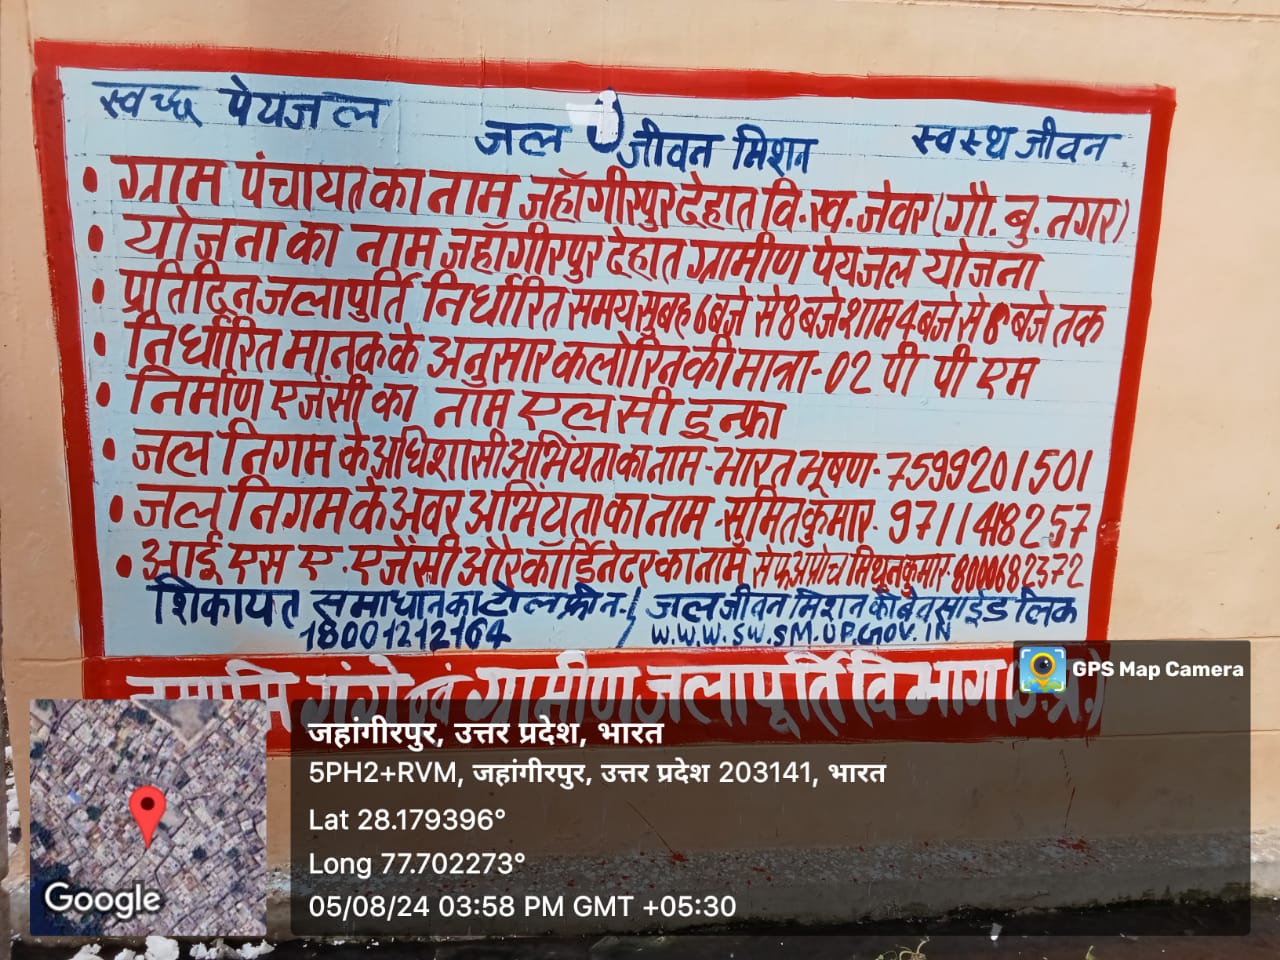 स्वच्छ पेयजल
जल जीवन मिशन
स्वस्थ जीवन
• ग्राम पंचायत का नाम जहाँगीरपुर देहात वि.ख. जेवर (गौ. बु. नगर)
• योजना का नाम जहाँगीरपुर देहात ग्रामीण पेयजल योजना
• प्रतिदिन जलापुर्ति निर्धारित समय सुबह 6 बजे से 8 बजे शाम 4 बजे से 8 बजे तक
• निर्धारित मानक के अनुसार कलोरिन की मात्रा - 02 पी पी एम
• निर्माण एजेंसी का नाम एलसी इन्फ्रा
• जल निगम के अधिशासी अभियंता का नाम - भारत भूषण - 7599201501
• जल निगम के अवर अभियंता का नाम - सुमित कुमार - 9711418257
• आई एस ए . एजेंसी और कॉर्डिनेटर का नाम मिथुन कुमार - 8000682372
शिकायत समाधान का टोल फ्री न. / जल जीवन मिशन की बेवसाईड लिक
18001212164 W.W.W.SW.SM.UP.GOV.IN
नमामि गंगे एवं ग्रामीण जलापूर्ति विभाग (उ.प्र.)
GPS Map Camera
जहांगीरपुर, उत्तर प्रदेश, भारत
5PH2+RVM, जहांगीरपुर, उत्तर प्रदेश 203141, भारत
Lat 28.179396°
Long 77.702273°
05/08/24 03:58 PM GMT +05:30
Google